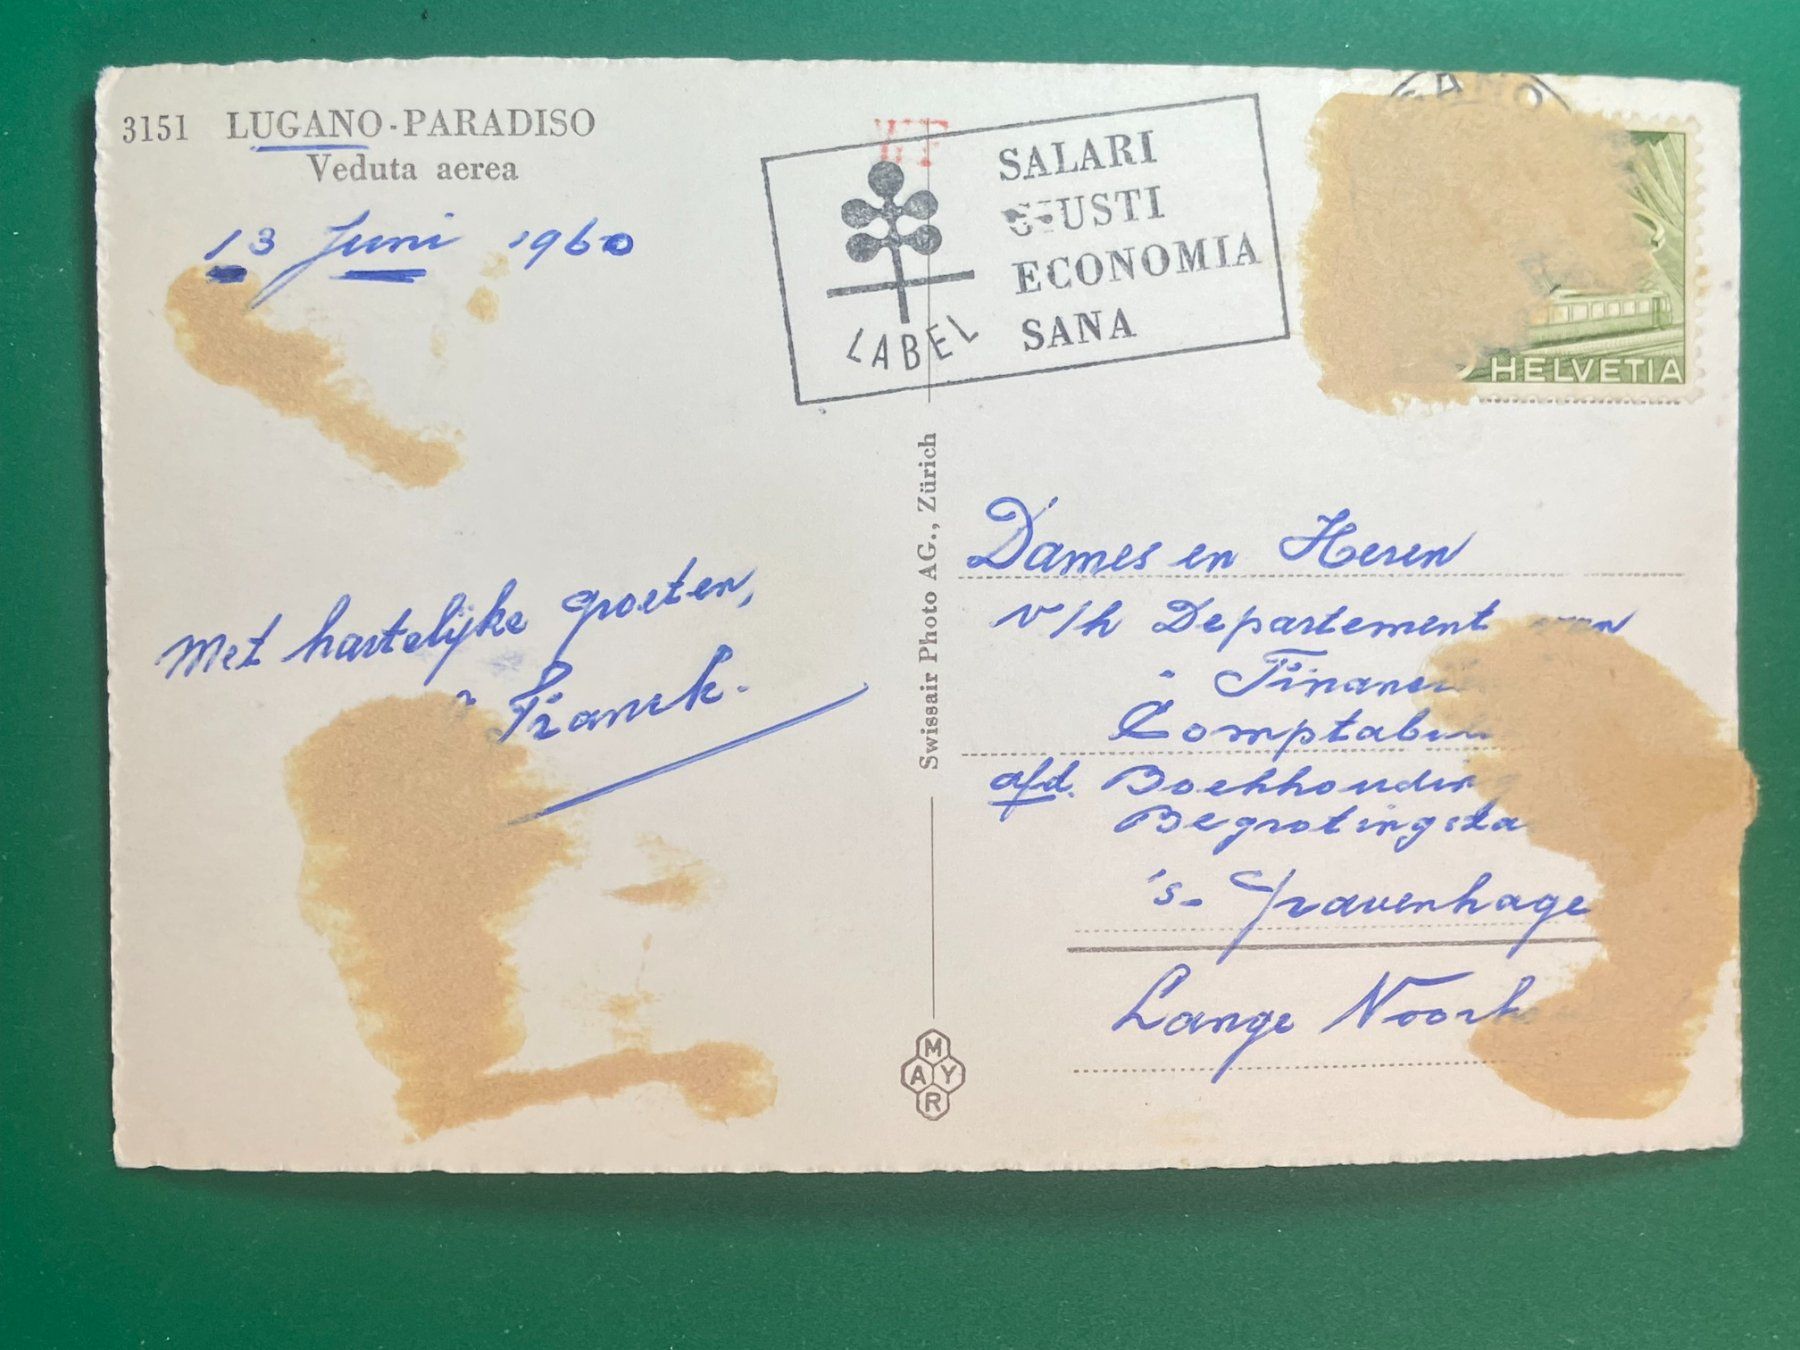 3151 LUGANO-PARADISO
Veduta aerea
13 Juni 1960
Met hartelijke groeten,
Franck.
WF
LABEL
SALARI
GIUSTI
ECONOMIA
SANA
HELVETIA
Swissair Photo AG., Zürich
MAYR
Dames en Heren
v/h Departement van
Comptabi
afd. Boekhouding
Begrotingsza
's-Gravenhage
Lange Voorh